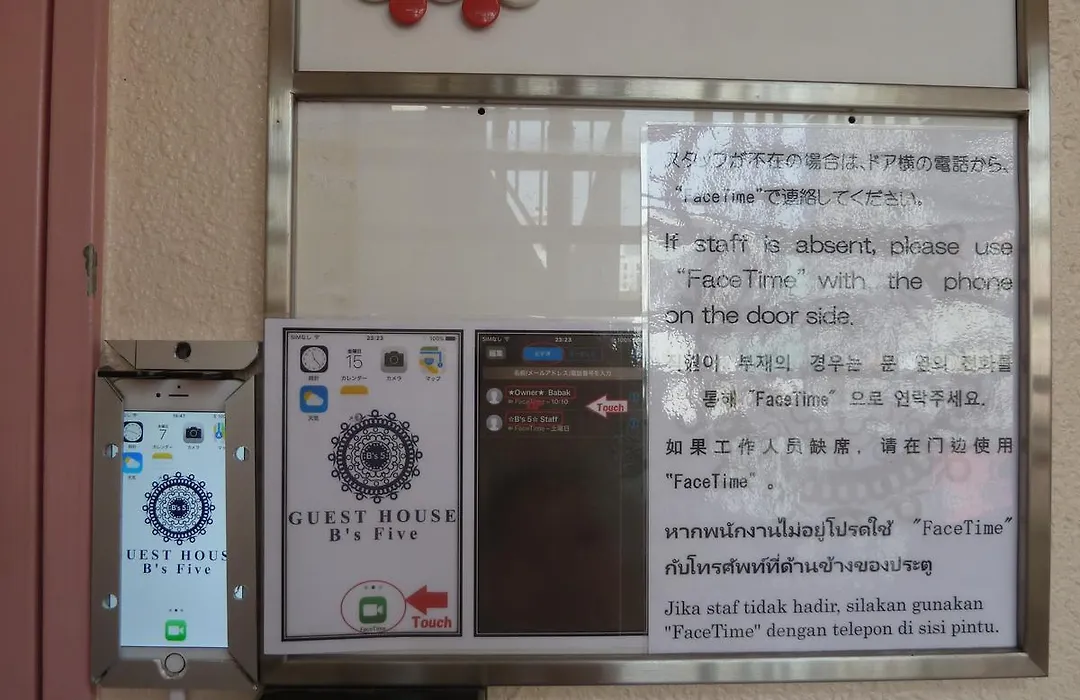 スタッフが不在の場合は、ドア横の電話から、
"FaceTime"で連絡してください。
If staff is absent, please use
"FaceTime" with the phone
on the door side.
직원이 부재의 경우는 문 옆의 전화를
통해 "FaceTime" 으로 연락주세요.
如果工作人员缺席，请在门边使用
"FaceTime"。
หากพนักงานไม่อยู่โปรดใช้ "FaceTime"
กับโทรศัพท์ที่ด้านข้างของประตู
Jika staf tidak hadir, silakan gunakan
"FaceTime" dengan telepon di sisi pintu.
SIMなし 23:23 100%
金曜日
15
時計 カレンダー カメラ マップ
天気
B's 5
GUEST HOUSE
B's Five
Touch
FaceTime
SIMなし 23:23
編集
名前/メールアドレス/電話番号を入力
★Owner★ Babak
FaceTime - 10:10
Touch
☆B's 5☆ Staff
FaceTime - 土曜日
7
時計 カレンダー カメラ
天気
B's 5
UEST HOUS
B's Five